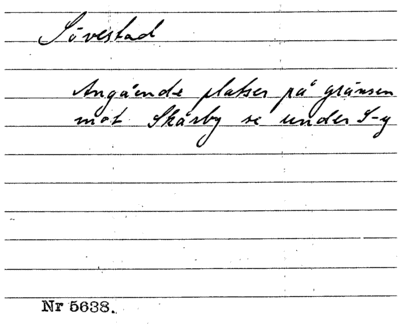 Sövestad
Angående platser på gränsen
mot Skårby se under S-y
Nr 5638.